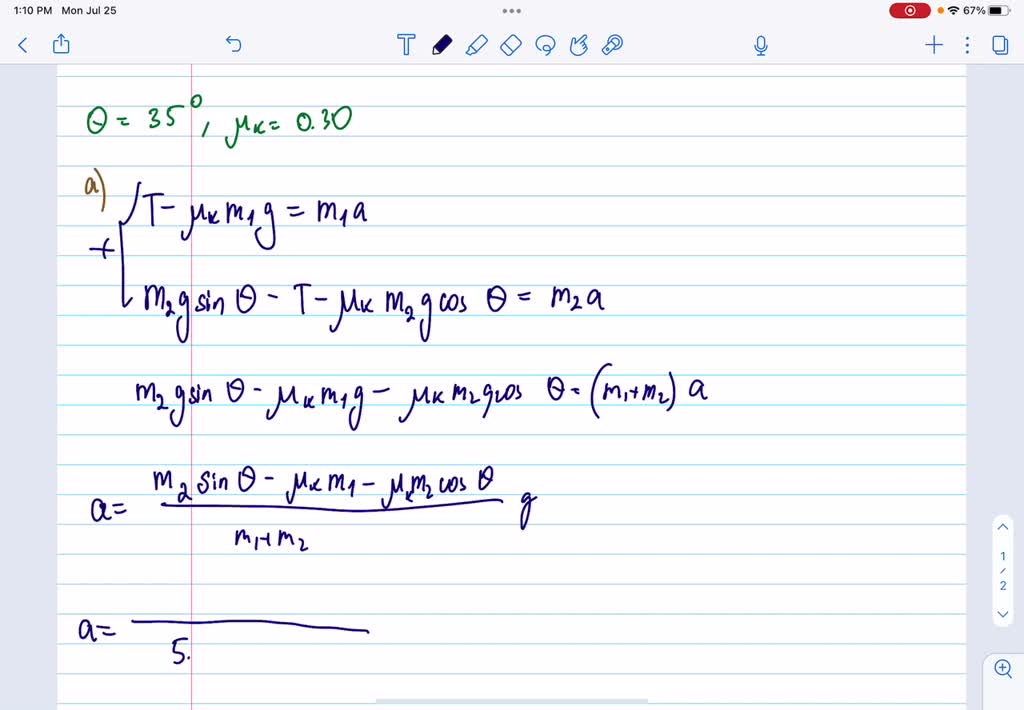 1:10 PM Mon Jul 25
67%
θ = 35°, μk = 0.30
a)
T - μk m1g = m1a
+
m2g sin θ - T - μk m2g cos θ = m2a
m2g sin θ - μk m1g - μk m2g cos θ = (m1+m2) a
a = m2 sin θ - μk m1 - μk m2 cos θ g
m1+m2
a =
5.
1
/
2